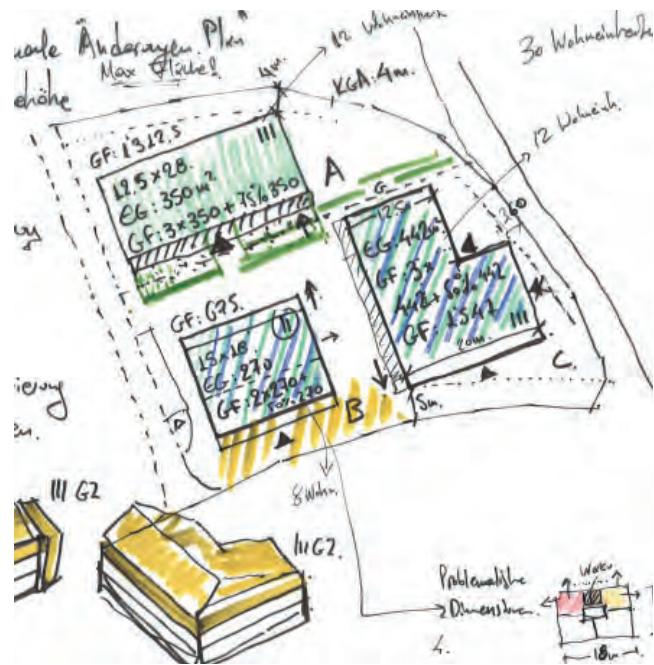 Änderungen. Plan"
Max Fläche!
4m.
12 Wohneinh
30 Wohneinheiten
KGA: 4m.
12 Wohneinh.
GF: 1312.5
III
12.5 x 28.
EG: 350 m²
GF: 3 x 350 + 75% 350
A
G
12.5
EG: 442
GF: 3 x
442 + 50% 442
GF: 1547
III
20m.
C.
5m.
GF: 675.
II
15 x 18.
EG: 270
GF: 2 x 270 +
50% 270
B
8 Wohn.
III G2
III G2.
Problematische
Dimensionen.
4.
18m